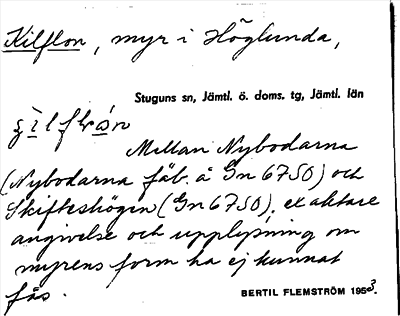 Kilflon, myr i Höglunda,
Stuguns sn, Jämtl. ö. doms. tg, Jämtl. län
Mellan Nybodarna
(Nybodarna fäb. å Gn 6750) och
Skifteshögen (Gn 6750), exaktare
angivelse och upplysning om
myrens form ha ej kunnat
fås.
BERTIL FLEMSTRÖM 1953.